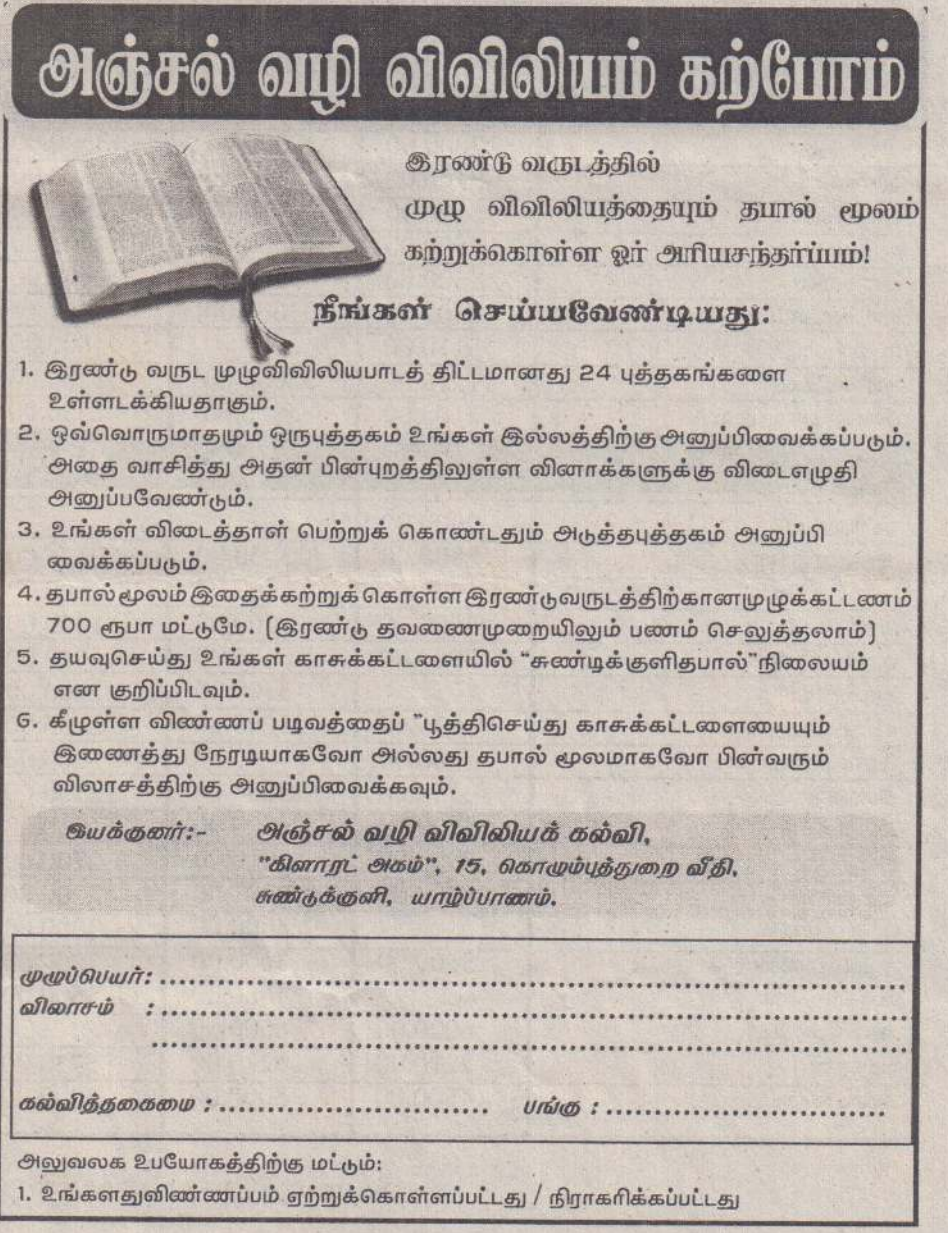 அஞ்சல் வழி விவிலியம் கற்போம்
இரண்டு வருடத்தில்
முழு விவிலியத்தையும் தபால் மூலம்
கற்றுக்கொள்ள ஓர் அரியசந்தர்ப்பம்!
நீங்கள் செய்யவேண்டியது:
1. இரண்டு வருட முழுவிவிலியபாடத் திட்டமானது 24 புத்தகங்களை
உள்ளடக்கியதாகும்.
2. ஒவ்வொருமாதமும் ஒருபுத்தகம் உங்கள் இல்லத்திற்கு அனுப்பிவைக்கப்படும்.
அதை வாசித்து அதன் பின்புறத்திலுள்ள வினாக்களுக்கு விடைஎழுதி
அனுப்பவேண்டும்.
3. உங்கள் விடைத்தாள் பெற்றுக் கொண்டதும் அடுத்தபுத்தகம் அனுப்பி
வைக்கப்படும்.
4. தபால் மூலம் இதைக்கற்றுக் கொள்ள இரண்டுவருடத்திற்கானமுழுக்கட்டணம்
700 ரூபா மட்டுமே. (இரண்டு தவணைமுறையிலும் பணம் செலுத்தலாம்)
5. தயவுசெய்து உங்கள் காசுக்கட்டளையில் “சுண்டிக்குளிதபால்”நிலையம்
என குறிப்பிடவும்.
6. கீழுள்ள விண்ணப் படிவத்தைப் “பூத்திசெய்து காசுக்கட்டளையையும்
இணைத்து நேரடியாகவோ அல்லது தபால் மூலமாகவோ பின்வரும்
விலாசத்திற்கு அனுப்பிவைக்கவும்.
இயக்குனர்:- அஞ்சல் வழி விவிலியக் கல்வி,
"கிளாரட் அகம்", 15, கொழும்புத்துறை வீதி,
சுண்டுக்குளி, யாழ்ப்பாணம்.
முழுப்பெயர்: ..........................................................................
விலாசம் : ..........................................................................
..........................................................................
கல்வித்தகைமை : ............................ பங்கு : ............................
அலுவலக உபயோகத்திற்கு மட்டும்:
1. உங்களதுவிண்ணப்பம் ஏற்றுக்கொள்ளப்பட்டது / நிராகரிக்கப்பட்டது